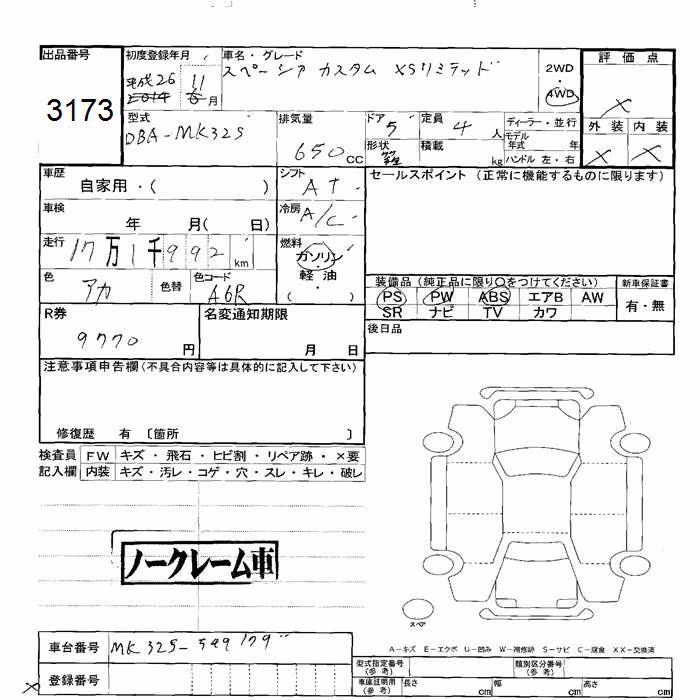 出品番号
3173
初度登録年月
平成26
2014
11
6 月
車名・グレード
スペーシア カスタム XSリミテッド
2WD
・
4WD
評価点
×
外装 内装
× ×
型式
DBA-MK32S
排気量
650 cc
ドア
5
定員
4 人
形状
積載
kg
ディーラー・並行
モデル
年式 年
ハンドル 左・右
車歴
自家用・( )
シフト
AT
セールスポイント (正常に機能するものに限ります)
車検
年 月( 日)
冷房
A/C
走行
17万1千992 km
燃料
ガソリン
軽油
( )
色
アカ
色替
色コード
A6R
装備品 (純正品に限り〇をつけてください)
PS PW ABS エアB AW
SR ナビ TV カワ
新車保証書
有・無
R券
9770 円
名変通知期限
月 日
後日品
注意事項申告欄(不具合内容等は具体的に記入して下さい)
修復歴 有 〔箇所 〕
検査員
記入欄
FW キズ・飛石・ヒビ割・リペア跡・×要
内装 キズ・汚レ・コゲ・穴・スレ・キレ・破レ
ノークレーム車
スペア
A-キズ E-エクボ U-凹み W-補修跡 S-サビ C-腐食 XX-交換済
車台番号
MK32S-549179
登録番号
×
型式指定番号
(参考)
類別区分番号
(参考)
車庫証明用
(参考)
長さ cm
幅 cm
高さ cm